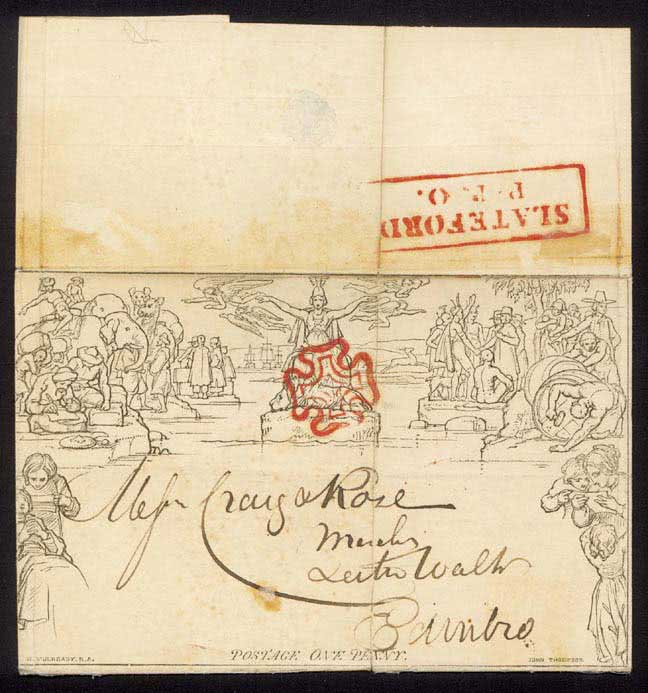 SLATEFORD
P.P.O.
Messrs Craig & Rose
Leith Walk
Edinbro
W. MULREADY, R.A.
POSTAGE ONE PENNY.
JOHN THOMPSON